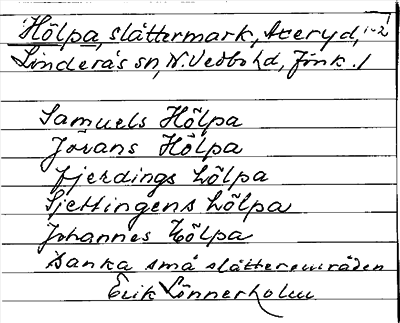 Hölpa, slåttermark, Åeryd, 1-2
Linderås sn, N. Vedbo hd, Jönk. l
Samuels Hölpa
Jörans Hölpa
Fjerdings hölpa
Sjettingens hölpa
Johannes Hölpa
Sanka små slåtterområden
Erik Lönnerholm